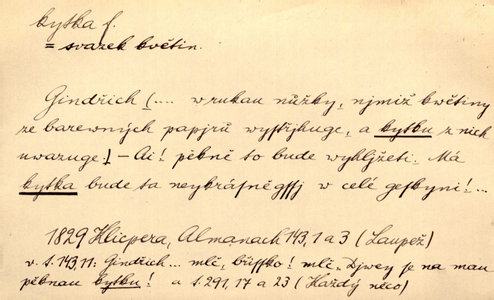 kytka f.
= svazek květin.
Gindřich (.... w rukau nůžky, njmiž kwětiny
ze barewných papjrů wystřjhuge, a kytku z nich
uwazuge! – Ai! pěkně to bude wyhljžeti. Má
kytka bude ta neykrásněgssj w celé geskyni!...
1829 Klicpera, Almanach 143, 1 a 3 (Laupež)
v. t. 143, 11: Gindřich... mlč, mlč, Djwey je na mau
pěknau kytku! a t. 291, 17 a 23 (Každý něco)